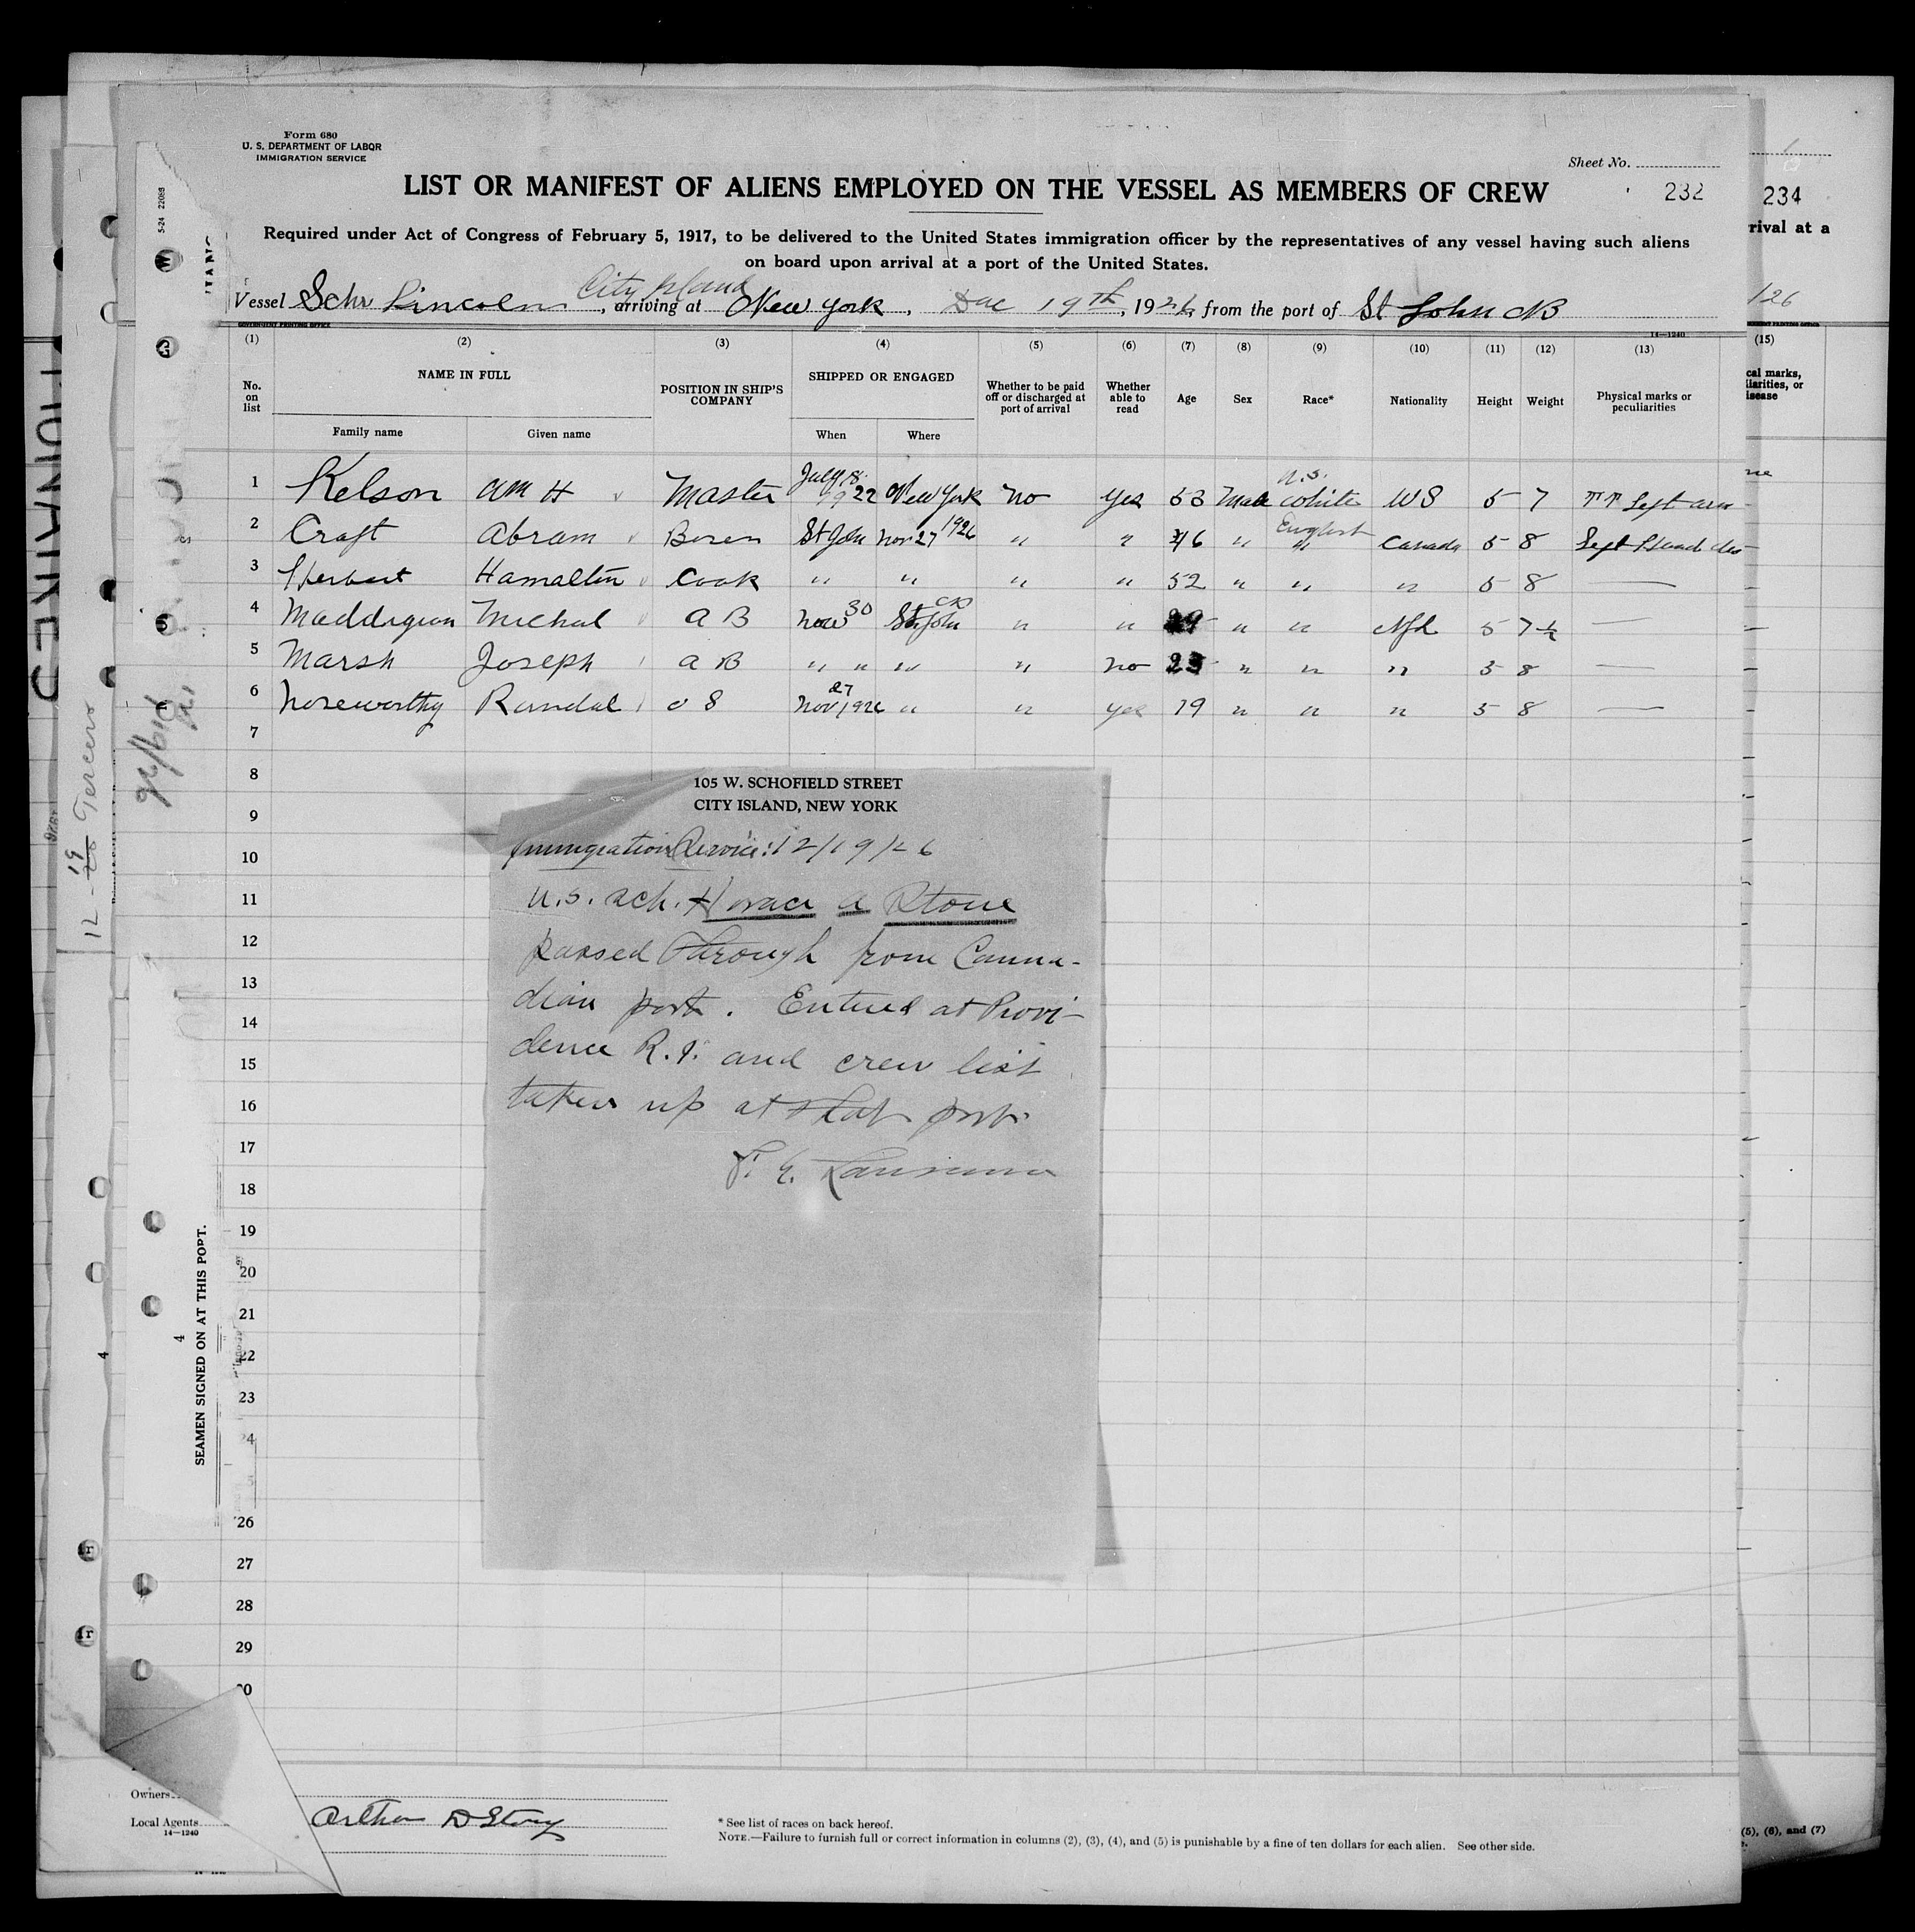 Form 680
U. S. DEPARTMENT OF LABOR
IMMIGRATION SERVICE
Sheet No.
LIST OR MANIFEST OF ALIENS EMPLOYED ON THE VESSEL AS MEMBERS OF CREW
232
234
Required under Act of Congress of February 5, 1917, to be delivered to the United States immigration officer by the representatives of any vessel having such aliens
on board upon arrival at a port of the United States.
rival at a
City Island
Vessel Schr Lincoln, arriving at New York, Dec 19th, 1926, from the port of St John NB
126
GOVERNMENT PRINTING OFFICE
14—1240
(1) (2) (3) (4) (5) (6) (7) (8) (9) (10) (11) (12) (13) (15)
No. on list
NAME IN FULL
Family name
Given name
POSITION IN SHIP'S COMPANY
SHIPPED OR ENGAGED
When
Where
Whether to be paid off or discharged at port of arrival
Whether able to read
Age
Sex
Race*
Nationality
Height
Weight
Physical marks or peculiarities
cal marks,
liarities, or
isease
1 Kelson Wm H Master July 18 1922 New York No Yes 53 Male U.S. White US 5 7 Left arm
2 Craft Abram Bosen St John Nov 27 1926 " " 46 " English " Canada 5 8 Left Hand
3 Herbert Hamalton Cook " " " " 52 " " " 5 8 —
4 Maddigan Michal A B Nov 30 St John " " 29 " " Nfd 5 7½ —
5 Marsh Joseph A B " " " " no 25 " " " 5 8 —
6 Noseworthy Randal O S Nov 27 1926 " " yes 19 " " " 5 8 —
7
8
9
10
11
12
13
14
15
16
17
18
19
20
21
22
23
24
26
27
28
29
30
105 W. SCHOFIELD STREET
CITY ISLAND, NEW YORK
Immigration Service: 12/19/26
U.S. sch. Horace A Stone
passed through from Canna-
dian port. Entered at Provi-
dence R.I. and crew list
taken up at that port.
SEAMEN SIGNED ON AT THIS PORT.
4
4
5-24 22088
12-19
Owners
Local Agents
14—1240
Arthur D Story
* See list of races on back hereof.
NOTE.—Failure to furnish full or correct information in columns (2), (3), (4), and (5) is punishable by a fine of ten dollars for each alien. See other side.
(5), (6), and (7)